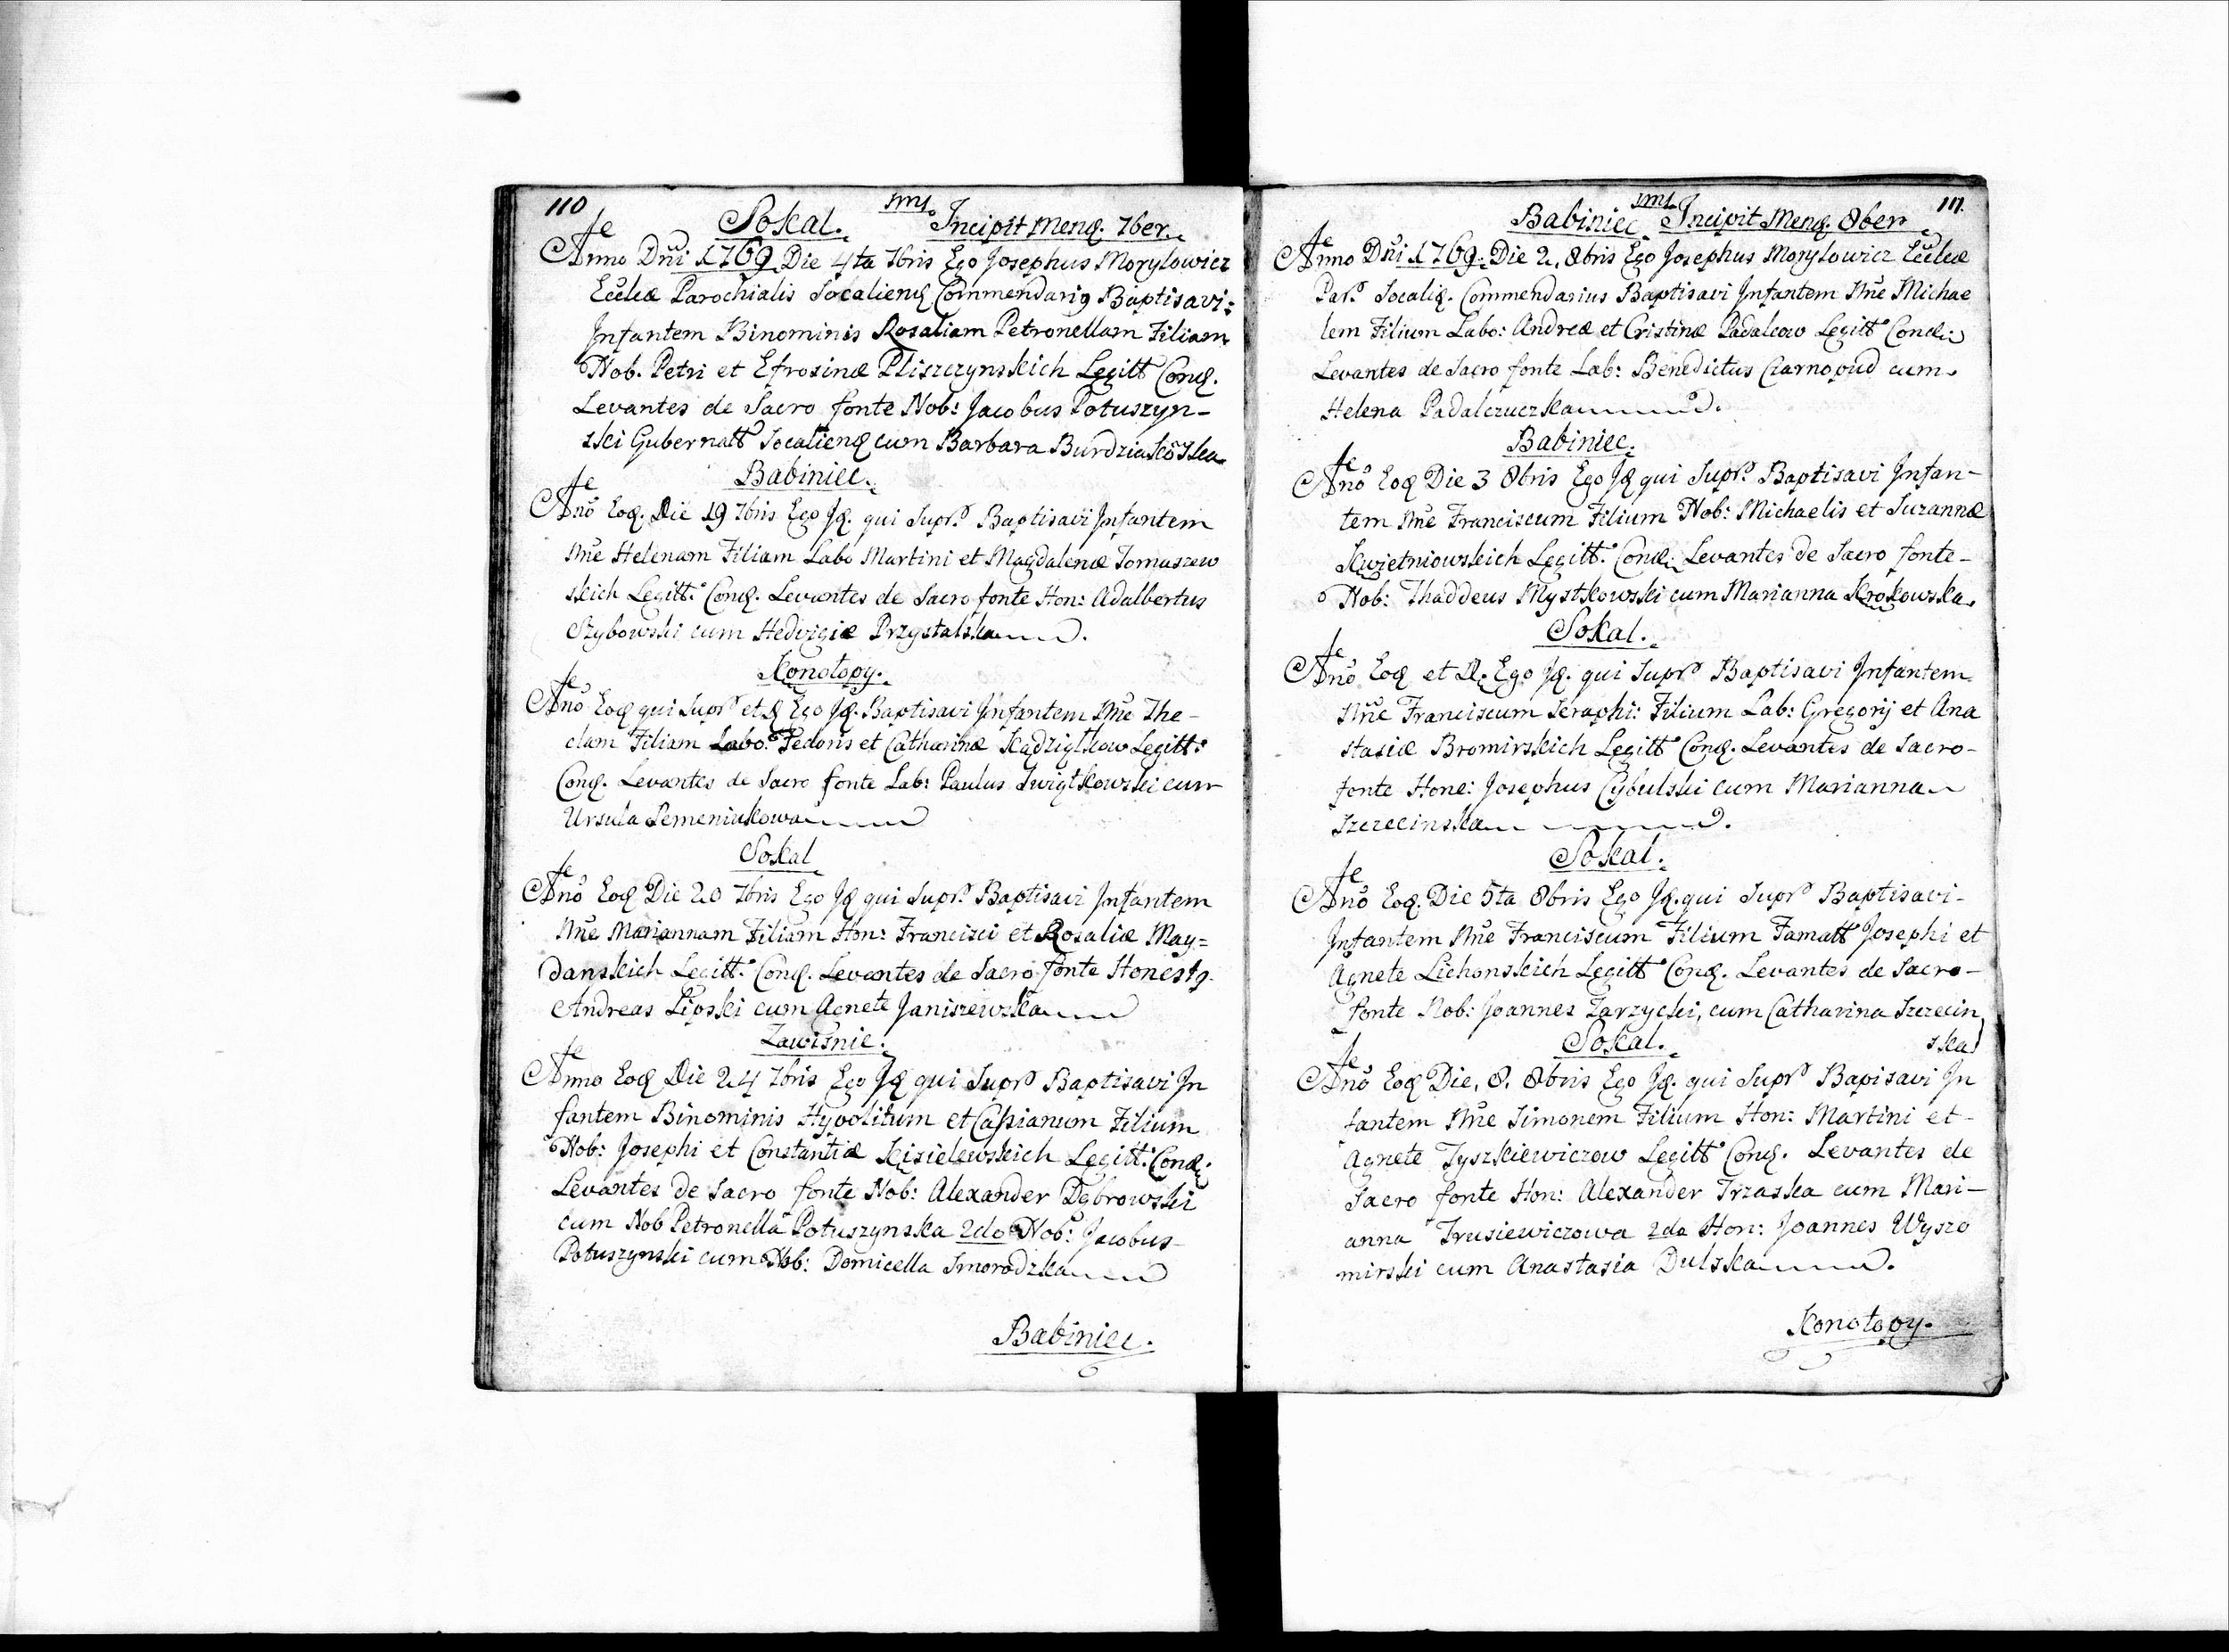 110
Sokal. Incipit Mensꝫ. 7ber.
Anno Dn̄i 1769 Die 4ta 7bris Ego Josephus Morylowicz
Eccliæ Parochialis Socaliensꝫ Commendariꝰ Baptisavi:
Infantem Binominis Rosaliam Petronellam Filiam
Nob. Petri et Efrosinæ Pliszczynskich Legitt Conꝫ.
Levantes de Sacro fonte Nob: Jacobus Potuszyn-
ski Gubernatt Socaliensꝫ cum Barbara Burdziakoska
Babiniec.
Ano Eoꝫ. Die 19 7bris Ego Jꝫ. qui Supr. Baptisavi Infantem
Nn̄e Helenam Filiam Labo Martini et Magdalenæ Tomaszew
skich Legitt. Conꝫ. Levantes de Sacro fonte Hon: Adalbertus
Szybowski cum Hedvigiæ Przystalska
Konotopy.
Ano Eoꝫ qui Supr et Ego Jꝫ. Baptisavi Infantem Nn̄e The-
clam Filiam Labo. Fedoris et Catharinæ Legitt.
Conꝫ. Levantes de Sacro fonte Lab: Paulus Swiątkowski cum
Ursula Semeniukowa
Sokal
Ano Eoꝫ Die 20 7bris Ego Jꝫ qui Supr. Baptisavi Infantem
Nn̄e Mariannam Filiam Hon: Francisci et Rosaliæ May=
danskich Legitt. Conꝫ. Levantes de Sacro fonte Honestꝰ.
Andreas Lipski cum Agnete Janiszewska
Zawisnie.
Anno Eoꝫ Die 24 7bris Ego Jꝫ qui Supr Baptisavi In
fantem Binominis Hypolitum et Cassianum Filium
Nob: Josephi et Constantiæ Kisielewskich Legitt. Conꝫ.
Levantes de Sacro fonte Nob: Alexander Dąbrowski
cum Nob Petronella Potuszynska 2do Nob: Jacobus
Potuszynski cum Nob: Domicella Smorodzka
Babiniec.
111.
Babiniec. Incipit Mensꝫ. 8ber
Anno Dn̄i 1769. Die 2. 8bris Ego Josephus Morylowicz Eccliæ
Par. Socaliꝫ. Commendarius Baptisavi Infantem Nn̄e Michae
lem Filium Labo: Andreæ et Cristinæ Padalcow Legitt Conꝫ.
Levantes de Sacro fonte Lab: Benedictus cum
Helena Padalczuczka
Babiniec.
Ano Eoꝫ Die 3 8bris Ego Jꝫ qui Supr. Baptisavi Infan-
tem Nn̄e Franciscum Filium Nob: Michaelis et Suzannæ
Kwietniowskich Legitt. Conꝫ. Levantes de Sacro fonte-
Nob: Thaddeus Mystkowski cum Marianna Krokowska.
Sokal.
Ano Eoꝫ et D. Ego Jꝫ. qui Supr Baptisavi Infantem
Nn̄e Franciscum Seraphi: Filium Lab: Gregorij et Ana
stasiæ Bromirskich Legitt Conꝫ. Levantes de Sacro-
fonte Hone: Josephus Cybulski cum Marianna
Szczecinska
Sokal.
Ano Eoꝫ. Die 5ta 8bris Ego Jꝫ. qui Supr Baptisavi-
Infantem Nn̄e Franciscum Filium Famatt Josephi et
Agnete Lichonskich Legitt Conꝫ. Levantes de Sacro-
fonte Nob: Joannes Zarzycki, cum Catharina Szczecin
ska
Sokal.
Ano Eoꝫ Die, 8. 8bris Ego Jꝫ. qui Supr Bapisavi In
fantem Nn̄e Simonem Filium Hon: Martini et-
Agnete Tyszkiewiczow Legitt Conꝫ. Levantes de
Sacro fonte Hon: Alexander Trzaska cum Mari-
anna Trusiewiczowa 2do Hon: Joannes Wyszo
mirski cum Anastasia Dulska
Konotopy.